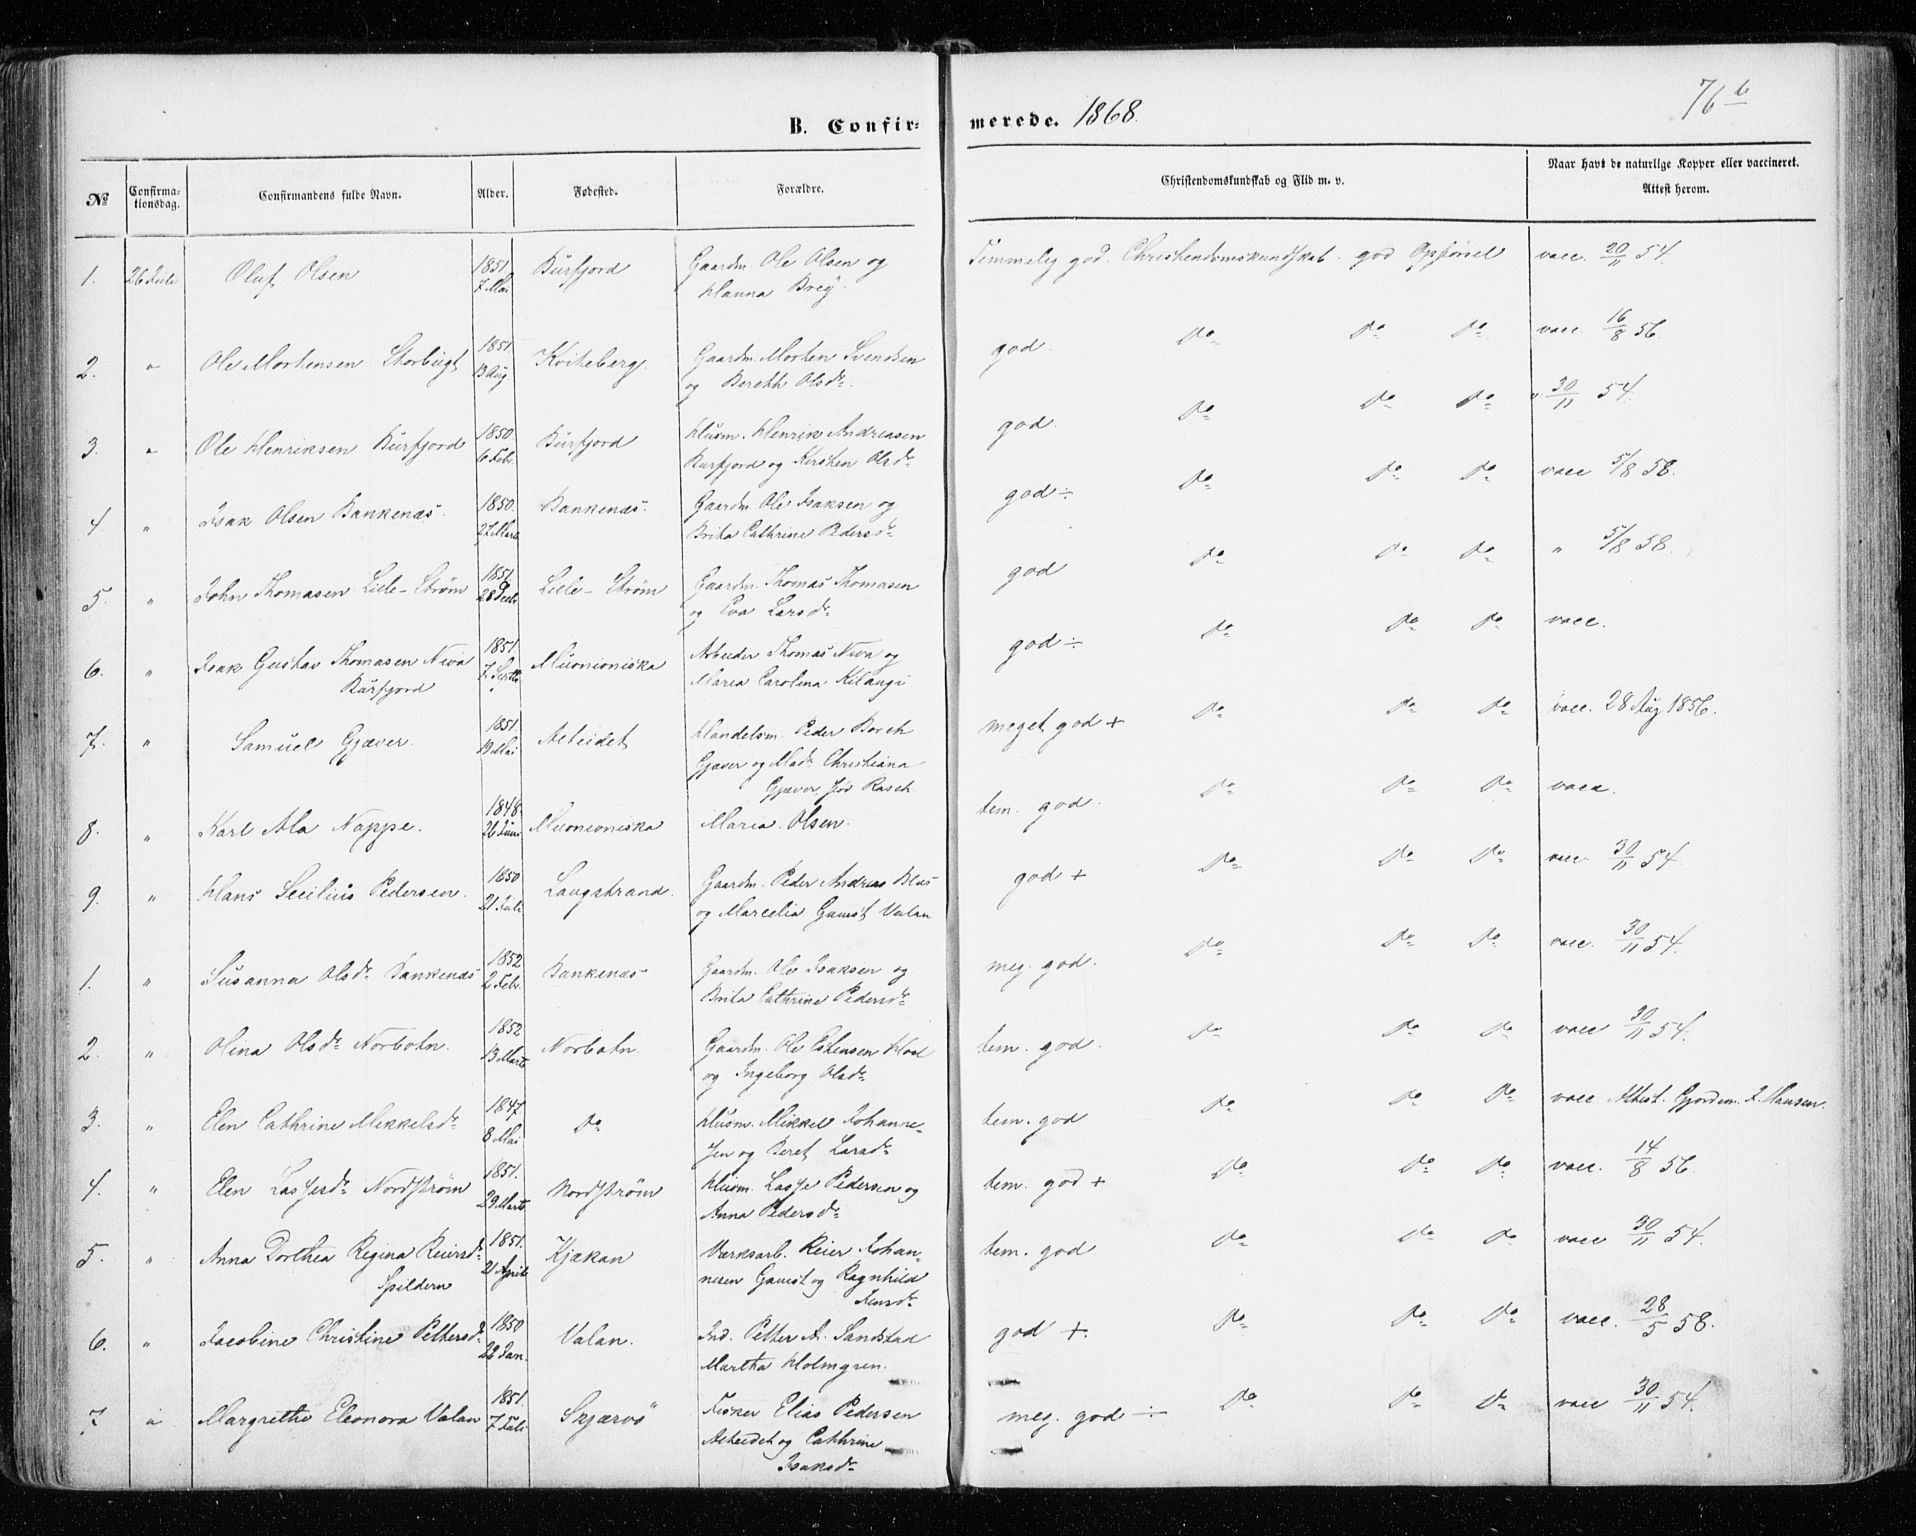 76 b
B. Confir- merede. 1868.
№ Confirma-tionsdag. Confirmandens fulde Navn. Alder. Fødested. Forældre. Christendomskundskab og Flid m. v. Naar havt de naturlige Kopper eller vaccineret. Attest herom.
1. 26 Juli Oluf Olsen 1851. 7 Mai Burfjord Gaardm. Ole Olsen og Temmelig god. Christendomskundskab. god Opførsel vacc. 20/11 54.
Hanna Brey.
2. " Ole Mortensen Storbugt 1851. 13 Aug. Kviteberg. Gaardm. Morten Svendsen god. Do Do Do vacc. 16/8 56.
og Berethe Olsdr.
3. " Ole Henriksen Burfjord 1850. 6 Febr. Burfjord Husm. Henrik Andreasen god. Do Do Do " 30/11 54.
Burfjord og Kirsten Olsdr
4. " Isak Olsen Bankenæs. 1850. 27 Marts Bankenæs. Gaardm. Ole Isaksen og god ÷ Do Do Do vacc 5/8 58.
Brita Cathrine Pedersdr
5. " John Thomasen Lille-Strøm 1851. 28 Febr. Lille-Strøm Gaardm. Thomas Thomasen god Do Do Do " 5/8 58.
og Eva Larsdr
6. " Isak Gustav Thomasen Niva 1851. 7 Muonioniska Arbeider Thomas Niva og god ÷ Do Do Do vacc.
Burfjord Maria Carolina Kilangi
7. " Samuel Gjæver. 1851. 19 Mai Alteidet Handelsm. Peder Borch meget god + Do Do Do vacc. 28 Aug 1856.
Gjæver og Mad. Christiana
Gjæver fød Rasch.
8. " Karl Ala Nappe. 1848. 26 Juni Muonioniska Maria Olsen. tem. god. Do Do Do vacc.
9. " Hans Secilius Pedersen. 1850 21 Juli Langstrand. Gaardm. Peder Andreas god + Do Do Do vacc. 30/11 54.
og Marcelia Gamst Valan
1. " Susanna Olsdr Bankenæs 1852. 2 Febr. Bankenæs Gaardm. Ole Isaksen og meg. god. Do Do Do vacc. 30/11 54.
Brita Cathrine Pedersdr
2. " Olina Olsdr Norbotn. 1852. 13 Marts Norbotn. Gaardm. Ole Estensen tem. god. Do Do Do vacc 30/11 54.
og Ingeborg Olsdr
3. " Elen Cathrine Mikkelsdr 1847. 8 Mai Do Husm. Mikkel Johanne- tem. god Do Do Do vacc. Attest. Gjordem. J. Hansen.
sen og Beret Larsdr
4. " Elen Lassesdr Nordstrøm 1851. 29 Marts Nordstrøm Husm. Lasse Pedersen og tem. god + Do Do Do vacc. 14/8 56.
Anna Pedersdr
5. " Anna Dorthea Regina Reiersdr 1851. 21 April Kjækan Værksarb. Reier Johan- tem. god Do Do Do vacc 30/11 54.
Spildern nesen Gamst og Ragnhild
Jensdr
6. " Jacobine Christine Pettersdr 1850 28 Jan. Valan. Ind. Petter A. Sandstad god +. Do Do Do vacc. 28/5 58.
Martha Holmgren.
7 " Margrethe Eleonora Valan 1851. 7 Juli Skjærvø Fisker Elias Pedersen meg. god ÷ Do Do Do vacc 30/11 54.
Alteidet og Cathrine
Isaksdr